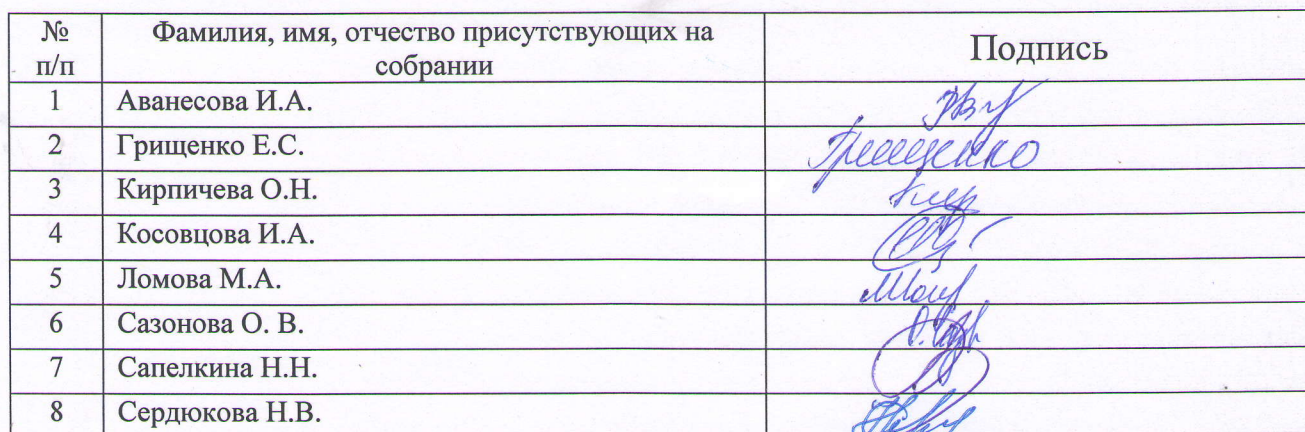 № п/п
Фамилия, имя, отчество присутствующих на
собрании
Подпись
1 Аванесова И.А.
2 Грищенко Е.С. Грищенко
3 Кирпичева О.Н.
4 Косовцова И.А.
5 Ломова М.А.
6 Сазонова О. В.
7 Сапелкина Н.Н.
8 Сердюкова Н.В.